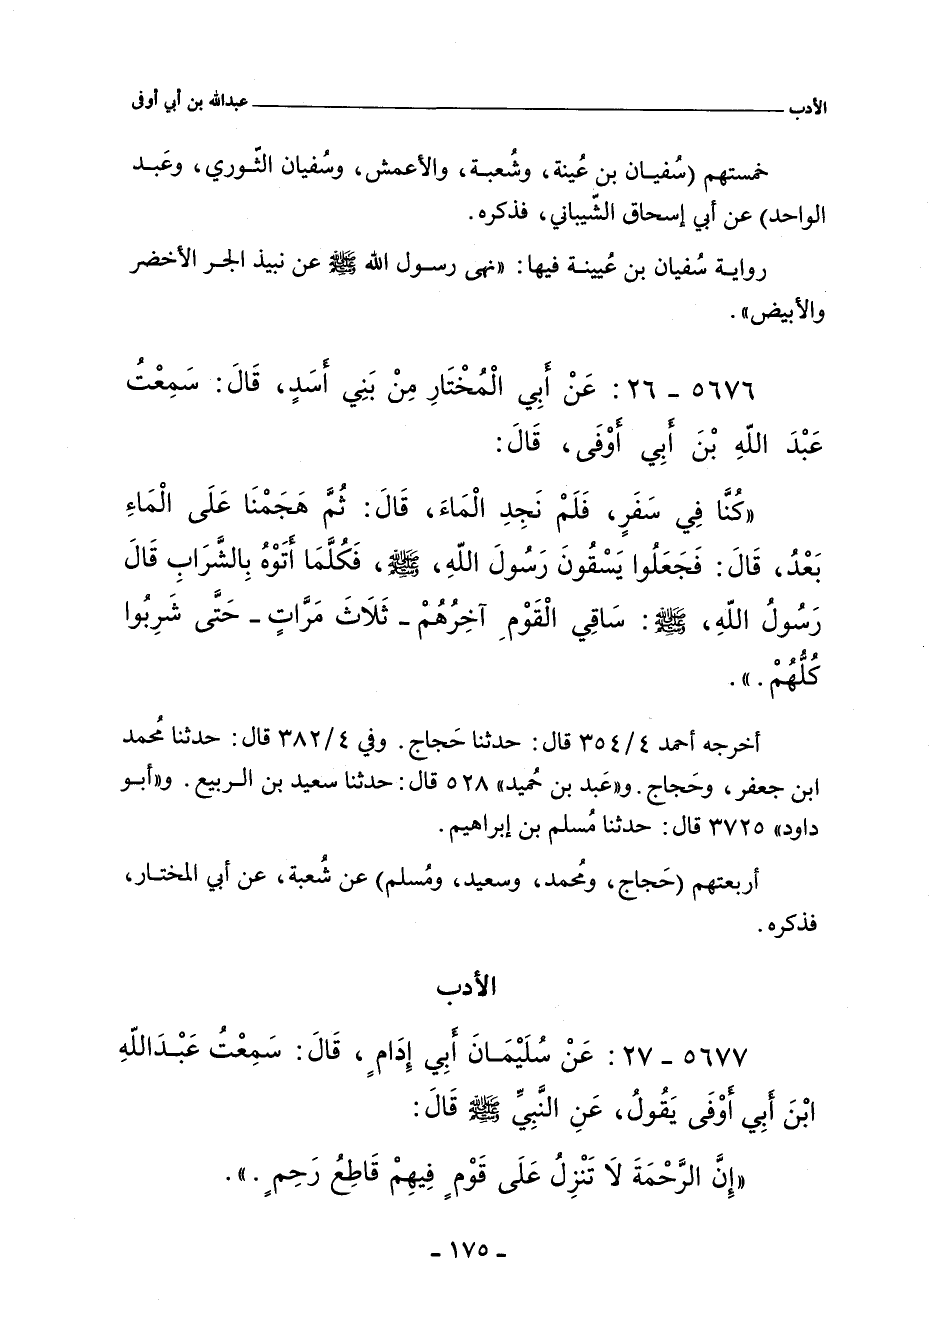 الأدب ـــــــ عبدالله بن أبي أوفى
خمستهم (سُفيـان بن عُينة، وشُعبـة، والأعمش، وسُفيان الثّـوري، وعَبـد
الواحد) عن أبي إسحاق الشّيباني، فذكره.
روايـة سُفيان بن عُيينـة فيها: «نهى رسـول الله ﷺ عن نبيذ الجـر الأخضر
والأبيض».
٥٦٧٦ ـ ٢٦ : عَنْ أَبِي الْمُخْتَارِ مِنْ بَنِي أَسَدٍ، قَالَ: سَمِعْتُ
عَبْدَ اللّهِ بْنَ أَبِي أَوْفَى، قَالَ:
«كُنَّا فِي سَفَرٍ، فَلَمْ نَجِدِ الْمَاءَ، قَالَ: ثُمَّ هَجَمْنَا عَلَى الْمَاءِ
بَعْدُ، قَالَ: فَجَعَلُوا يَسْقُونَ رَسُولَ اللّهِ، ﷺ، فَكُلَّمَا أَتَوْهُ بِالشَّرَابِ قَالَ
رَسُولُ اللّهِ، ﷺ: سَاقِي الْقَوْمِ آخِرُهُمْ ـ ثَلَاثَ مَرَّاتٍ ـ حَتَّى شَرِبُوا
كُلُّهُمْ.».
أخرجه أحمد ٣٥٤/٤ قال: حدثنا حَجاج. وفي ٣٨٢/٤ قال: حدثنا مُحمد
ابن جعفر، وحَجاج. و«عَبد بن حُميد» ٥٢٨ قال: حدثنا سعيد بن الـربيع. و«أبـو
داود» ٣٧٢٥ قال: حدثنا مُسلم بن إبراهيم.
أربعتهم (حَجاج، ومُحمد، وسعيد، ومُسلم) عن شُعبة، عن أبي المختـار،
فذكره.
الأدب
٥٦٧٧ ـ ٢٧ : عَنْ سُلَيْمَـانَ أَبِي إِدَامٍ، قَالَ: سَمِعْتُ عَبْـدَاللّهِ
ابْنَ أَبِي أَوْفَى يَقُولُ، عَنِ النَّبِيِّ ﷺ قَالَ:
«إِنَّ الرَّحْمَةَ لَا تَنْزِلُ عَلَى قَوْمٍ فِيهِمْ قَاطِعُ رَحِمٍ.».
ـ ١٧٥ ـ